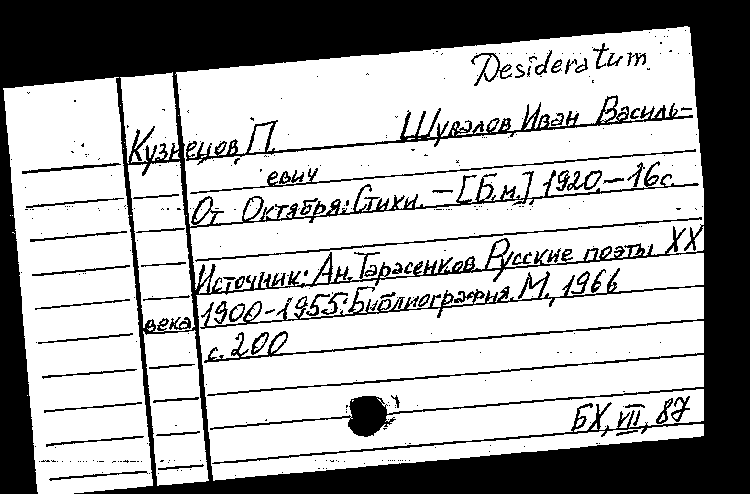 Desideratum
Кузнецов, П. Шувалов, Иван Василь-
евич
От Октября: Стихи. — [Б.м.], 1920. — 16с.
Источник: Ан. Тарасенков. Русские поэты XX
века 1900-1955: Библиография. М., 1966
с. 200
БХ, VII, 87